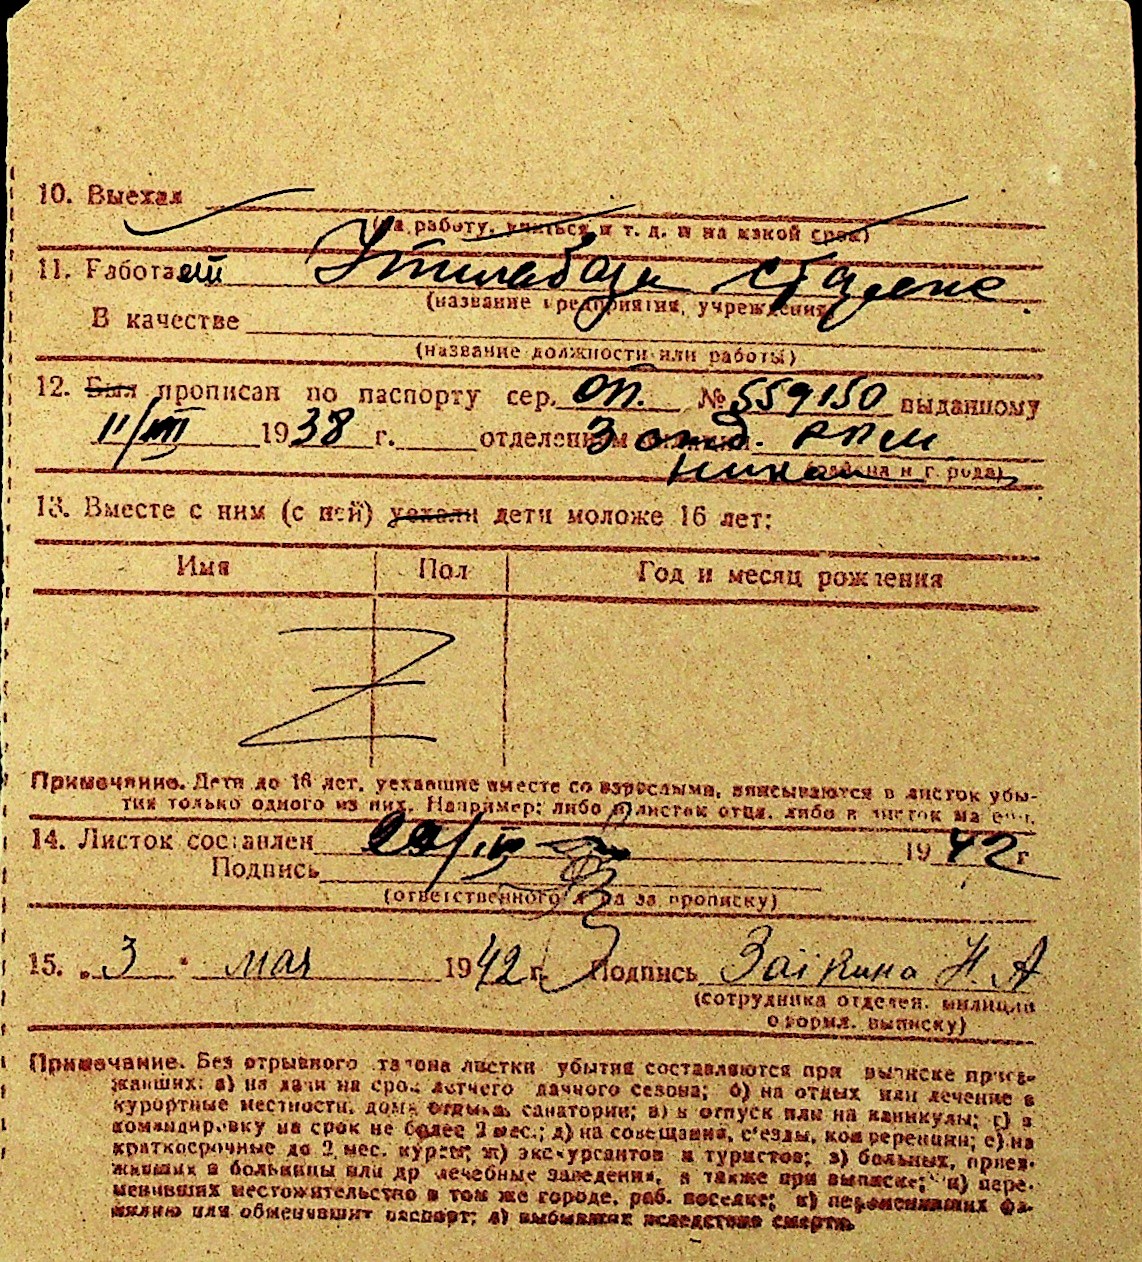 10. Выехал
(на работу, учиться и т. д. и на какой срок)
11. Работает Утильбаза
(название предприятия, учреждения)
В качестве
(название должности или работы)
12. Был прописан по паспорту сер. ОП. № 559150 выданному
11/VIII 1938 г. отделением 3 отд. РКМ
(района и города)
13. Вместе с ним (с ней) уехали дети моложе 16 лет:
Имя Пол Год и месяц рождения
Z
Примечание. Дети до 16 лет, уехавшие вместе со взрослыми, вписываются в листок убы-
тия только одного из них. Например: либо в листок отца, либо в листок матери.
14. Листок составлен 1942 г
Подпись
(ответственного лица за прописку)
15. „3“ мая 1942 г. Подпись Заікина Н. А
(сотрудника отделен. милиции
оформл. выписку)
Примечание. Без отрывного талона листки убытия составляются при выписке приез-
жавших: а) на дачи на срок летнего дачного сезона; б) на отдых или лечение в
курортные местности, дома отдыха, санатории; в) в отпуск или на каникулы; г) в
командировку на срок не более 2 мес.; д) на совещания, с'езды, конференции; е) на
краткосрочные до 2 мес. курсы; ж) экскурсантов и туристов; з) больных, приез-
жавших в больницы или др лечебные заведения, а также при выписке; и) пере-
менивших местожительство в том же городе, раб. поселке; к) переменивших фа-
милию или обменивших паспорт; л) выбывших вследствие смерти.